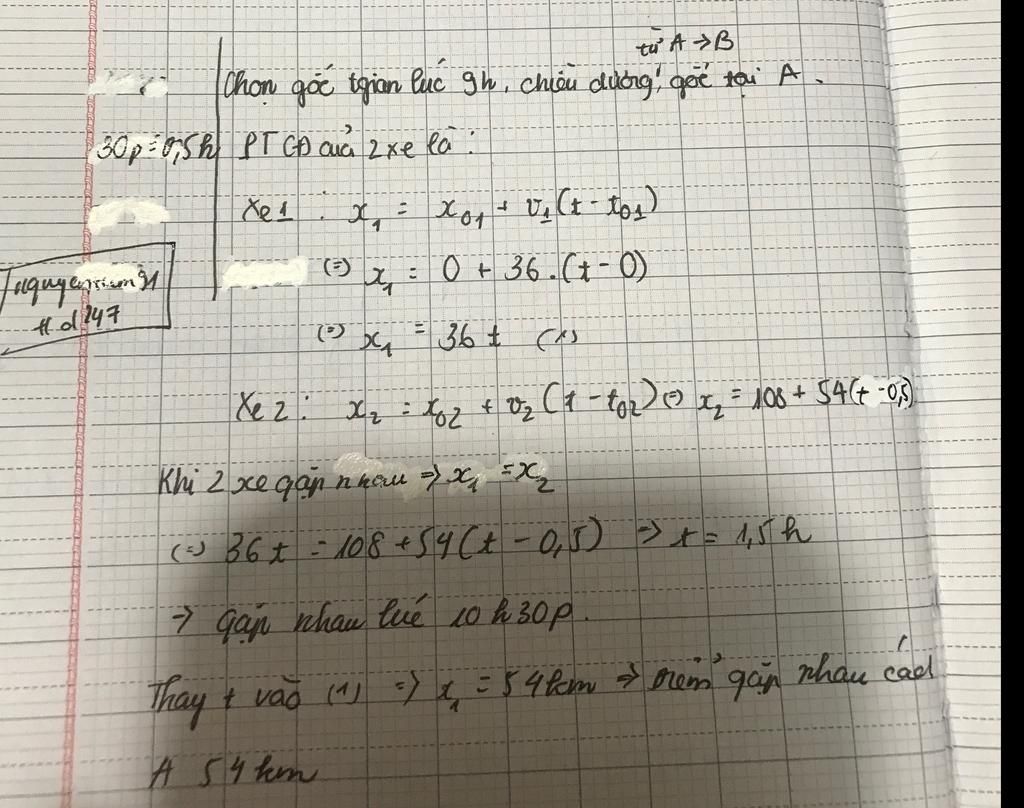 từ A → B
Chọn gốc tgian lúc 9h, chiều dương, gốc tại A.
30p = 0,5h
PT CĐ của 2 xe là:
Xe 1 : x₁ = x₀₁ + v₁(t - t₀₁)
(=) x₁ = 0 + 36.(t - 0)
nguyen 91
#d 247
(=) x₁ = 36 t (1)
Xe 2 : x₂ = x₀₂ + v₂(t - t₀₂) (=) x₂ = 108 + 54(t - 0,5)
Khi 2 xe gặp nhau => x₁ = x₂
(=) 36t = 108 + 54(t - 0,5) => t = 1,5h
→ gặp nhau lúc 10h30p.
Thay t vào (1) => x₁ = 54km => điểm gặp nhau cách
A 54 km